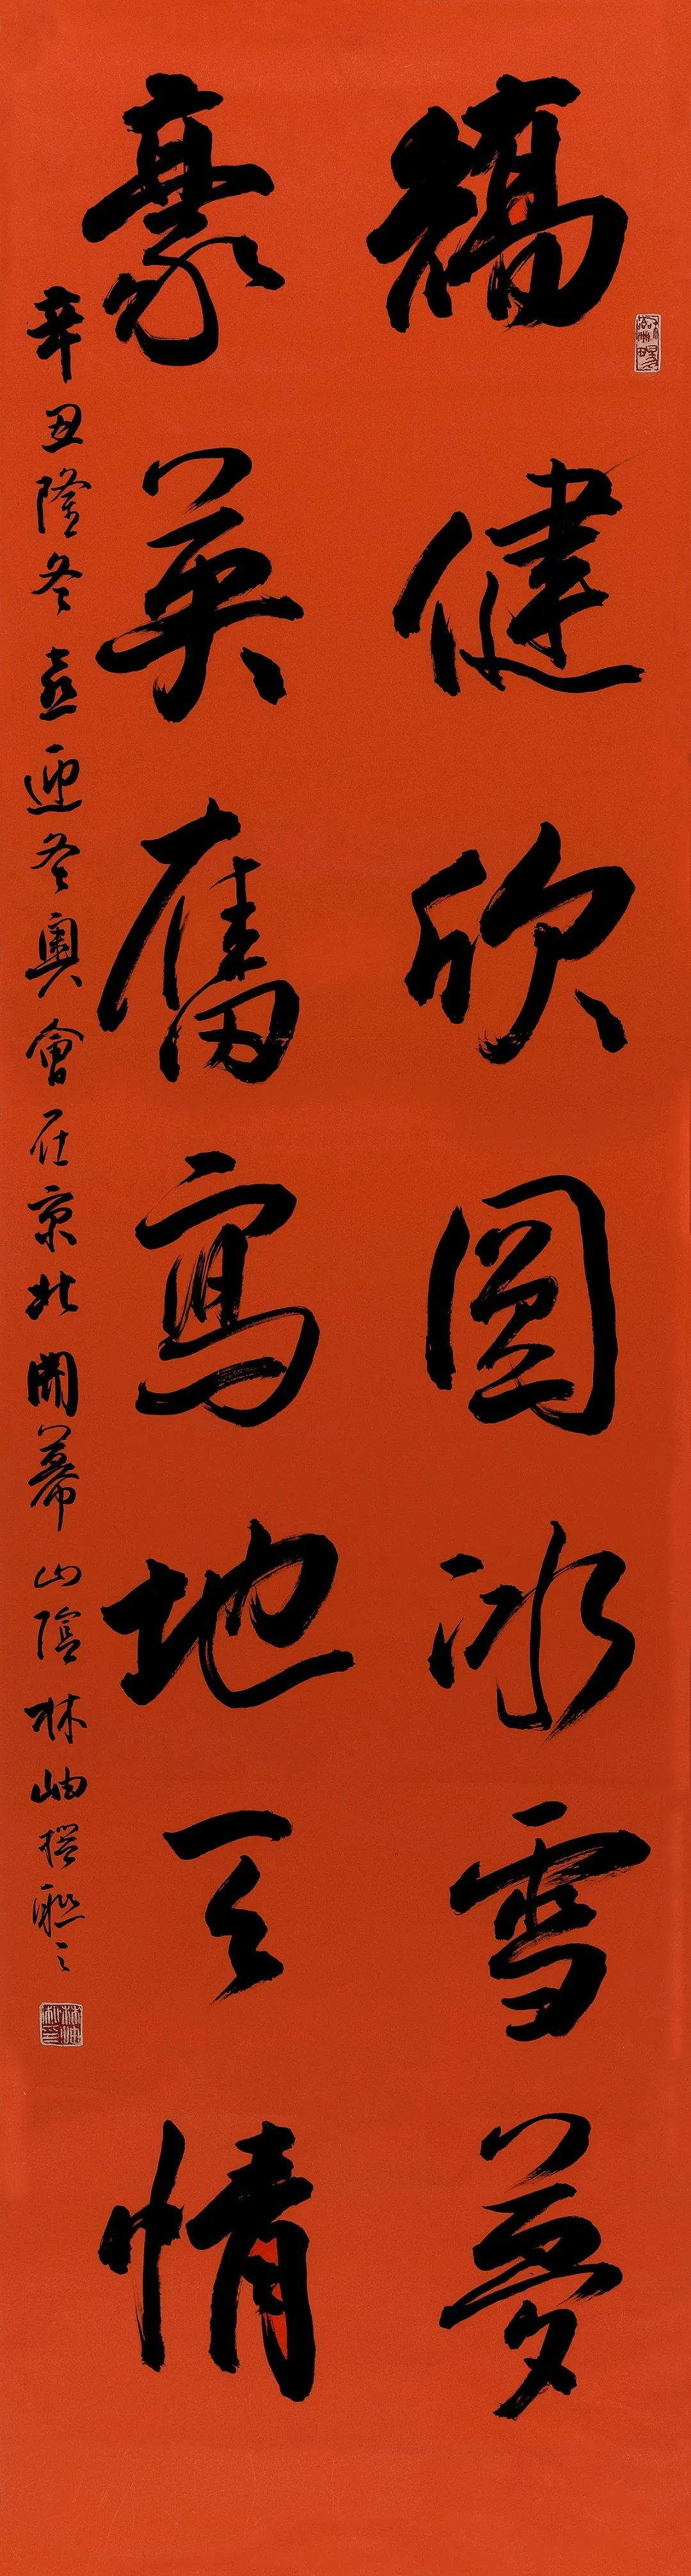 矯健欣圓冰雪夢
豪英奮寫地天情
辛丑隆冬喜迎冬奧會在京北開幕山陰林岫撰聯
林岫私印